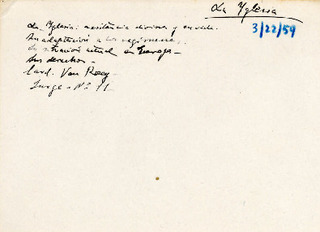 La Yglesia
3/22/59
La Yglesia: asistencia divina y su vida.
Su adaptación a los regímenes.
La situación actual en Europa -
Sus derechos -
Card. Van Roey -
Nº 11